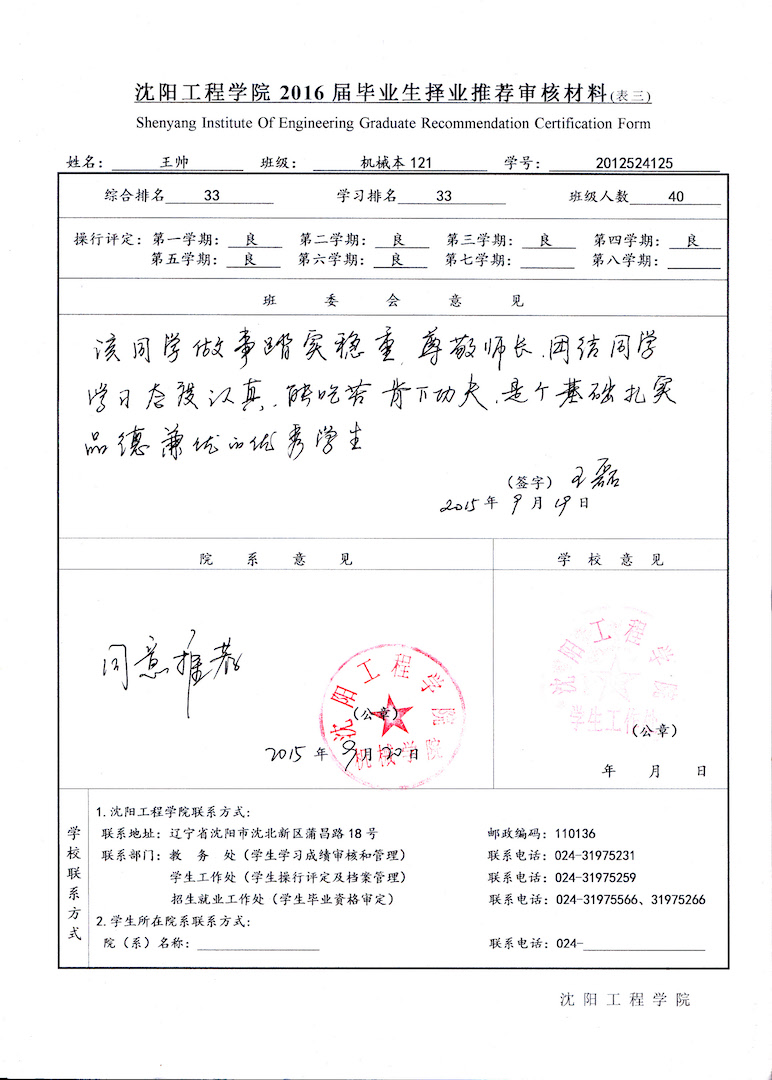 沈阳工程学院 2016 届毕业生择业推荐审核材料(表三)
Shenyang Institute Of Engineering Graduate Recommendation Certification Form
姓名： 王帅 班级： 机械本 121 学号： 2012524125
综合排名 33 学习排名 33 班级人数 40
操行评定：第一学期： 良 第二学期： 良 第三学期： 良 第四学期： 良
第五学期： 良 第六学期： 良 第七学期： 第八学期：
班 委 会 意 见
该同学做事踏实稳重，尊敬师长，团结同学
学习态度认真，能吃苦肯下功夫，是个基础扎实
品德兼优的优秀学生
（签字） 王磊
2015 年 9 月 19 日
院 系 意 见
学 校 意 见
同意推荐
沈阳工程学院
机械学院
（公章）
2015 年 9 月 20 日
沈阳工程学院
学生工作处
（公章）
年 月 日
学校联系方式
1.沈阳工程学院联系方式：
联系地址：辽宁省沈阳市沈北新区蒲昌路 18 号 邮政编码：110136
联系部门：教 务 处（学生学习成绩审核和管理） 联系电话：024-31975231
学生工作处（学生操行评定及档案管理） 联系电话：024-31975259
招生就业工作处（学生毕业资格审定） 联系电话：024-31975566、31975266
2.学生所在院系联系方式：
院（系）名称： 联系电话：024-
沈 阳 工 程 学 院